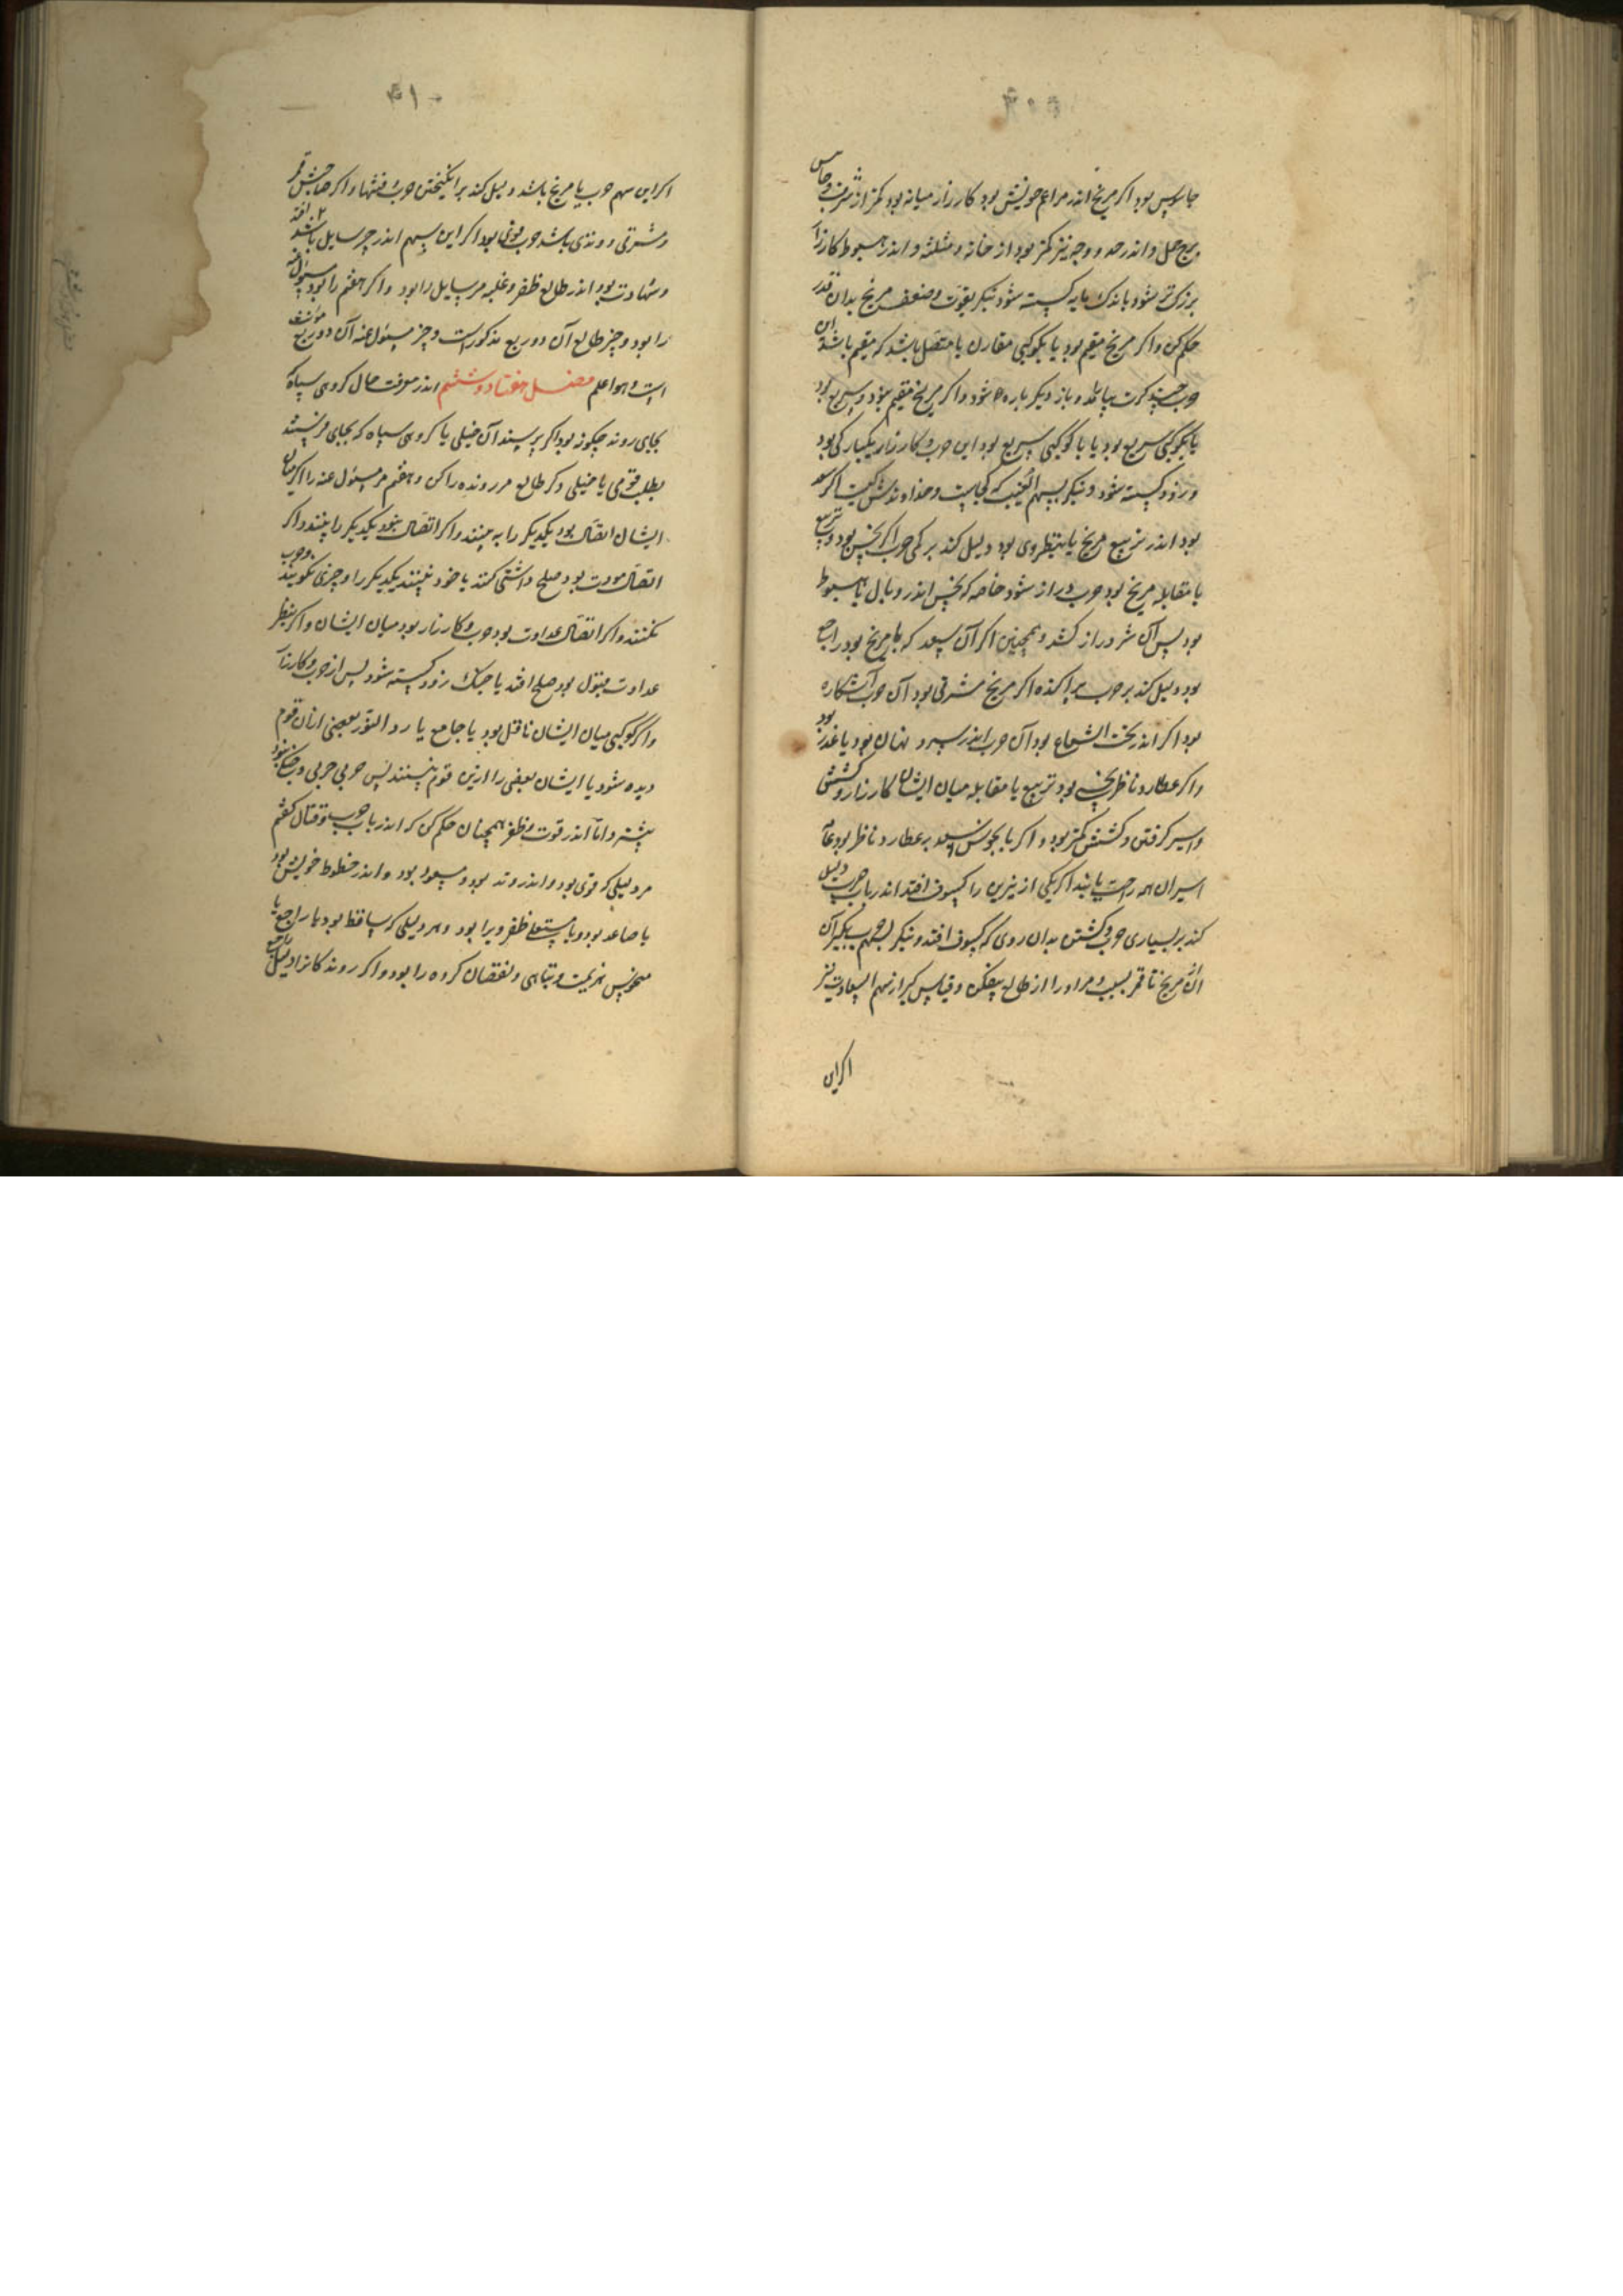 جاسوس بود اکر مریخ اندر مزاعم خویش بود کارزار میانه بود کمتر از شرف
برج حمل و اندر حد و وجه نیز کمتر بود از خانه و مثلثه و اندر هبوط کارزار
بزرک تر شود باندک مایه کسسته شود بنکر بقوت و ضعف مریخ بدان قدر
حکم کن و اکر مریخ مقیم بود یا بکوکبی مقارن یا متصل باشد که مقیم باشد این
حرب چند کرت بیاساید و باز دیکر باره شود و اکر مریخ مقیم نبود و سریع بود
یا بکوکبی سریع بود یا با کوکبی سریع بود این حرب و کارزار یکبارکی بود
و زود کسسته شود و بنکر بسهم الغیب که کجاست و خداوندش کیست اکر سعد
بود اندر تربیع مریخ یا بنظر وی بود دلیل کند بر کمی حرب اکر نحس بود و تربیع
یا مقابله مریخ بود حرب دراز شود خاصه که نحس اندر وبال یا هبوط
بود پس آن شر دراز کشد و همچنین اکر آن سعد که با مریخ بود راجع
بود دلیل کند بر حرب پراکنده اکر مریخ مشرقی بود آن حرب آشکاره
بود اکر اندر تحت الشعاع بود آن حرب اندر سر و نهان بود یا غدر بود
و اکر عطارد ناظر نحس بود تربیع یا مقابله میان ایشان کارزار و کشش
و اسیر کرفتن و کشتش کمتر بود و اکر با نحوس سعد بر عطارد ناظر بود
اسیران همه راحت یابند اکر یکی از نیرین را کسوف افتد اندر باب حرب دلیل
کند بر بسیاری حرب و کشتن بدان روی که کسوف افتد و بنکر بسهم حرب بکیر آن
از مریخ تا قمر بشب و مر او را از طالع بیفکن و قیاس کیر از سهم السعادت نیز
اکراین
۴۱۰
اکراین سهم حرب با مریخ باشد دلیل کند بر انکیختن حرب و فتنها و اکر صاحبش قمر
و مشرقی و وتدی باشد حرب قوی بود اکر این سهم اندر چیز سایل باشد
و شهادت بود اندر طالع ظفر و غلبه مر سایل را بود و اکر هفتم را بود مسئول عنه
را بود و چیز طالع آن دو ربع مذکور است و چیز مسئول عنه آن دو ربع مؤنث
است و هو اعلم فصل هفتاد و ششم اندر معرفت حال کروهی سپاه که
بجای روند چکونه بود اکر پرسند آن خیلی یا کروهی سپاه که بجای فرستند
بطلب قومی یا خیلی دکر طالع مر رونده را کن و هفتم مر مسئول عنه را اکر میان
ایشان اتصال بود یکدیکر را به بینند و اکر اتصال نبود یکدیکر را نبینند و اکر
اتصال مودت بود صلح و آشتی کنند یا خود نبینند یکدیکر را و چیزی نکویند و حرب
نکنند و اکر اتصال عداوت بود حرب و کارزار بود میان ایشان و اکر بنظر
عداوت مقبول بود صلح افتد یا جنک زود کسسته شود پس از حرب و کارزار
و اکر کوکبی میان ایشان ناقل بود یا جامع یا رد النور بعضی از آن قوم
دیده شود یا ایشان بعضی را ازین قوم ببینند پس حربی حربی و جنک نبود
بیشتر و اما اندر قوت و ظفر همچنان حکم کن که اندر باب حرب و قتال کفتم
مر دلیلی که قوی بود و اندر وتد بود و مسعود بود و اندر حظوظ خویش بود
یا صاعد بود و یا مستعلی ظفر ویرا بود و هر دلیلی که ساقط بود یا راجع یا
منحوس هزیمت و تباهی و نقصان کروه را بود و اکر روندکانرا دلیل